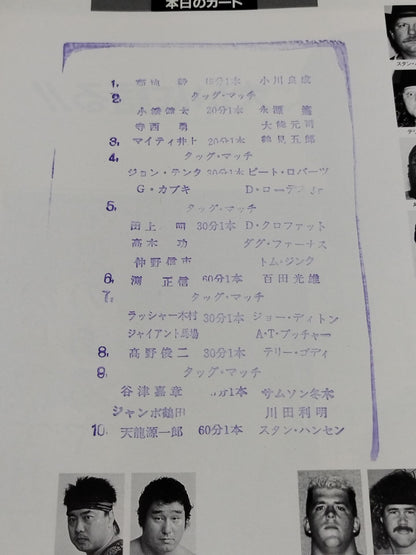 本日のカード
1. 菊地 毅 15分1本 小川良成
2. タッグ・マッチ
小橋健太 30分1本 永源 遙
寺西 勇 大熊元司
3. マイティ井上 20分1本 鶴見五郎
4. タッグ・マッチ
ジョン・テンタ 30分1本 ピート・ロバーツ
G・カブキ D・ローデスJr
5. タッグ・マッチ
田上 明 30分1本 D・クロファット
高木 功 ダグ・ファーナス
仲野信市 トム・ジンク
6. 渕 正信 60分1本 百田光雄
7. タッグ・マッチ
ラッシャー木村 30分1本 ジョー・ディトン
ジャイアント馬場 A・T・ブッチャー
8. 高野俊二 30分1本 テリー・ゴディ
9. タッグ・マッチ
谷津嘉章 分1本 サムソン冬木
ジャンボ鶴田 川田利明
10. 天龍源一郎 60分1本 スタン・ハンセン
スタン・